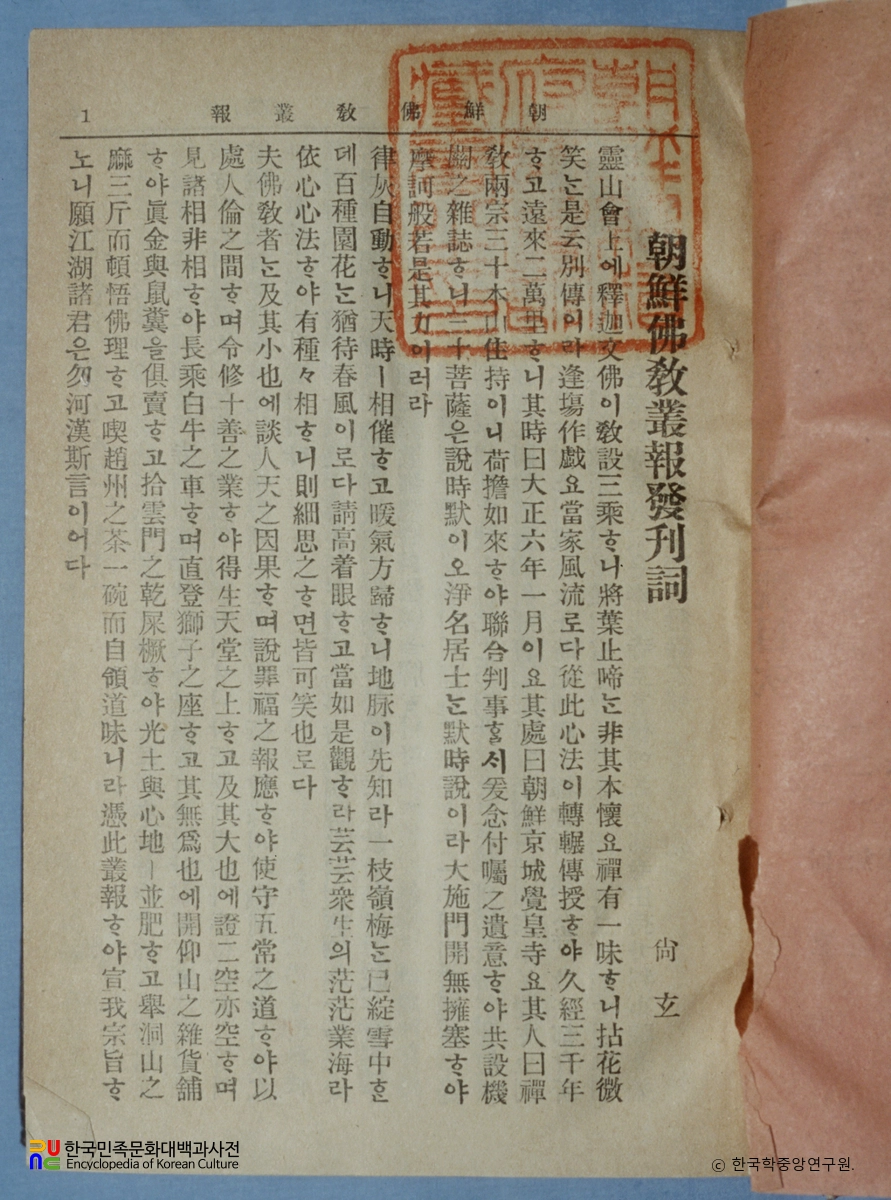 報叢敎佛鮮朝
1
朝鮮佛敎叢報發刊詞
尙玄
靈山會上에釋迦文佛이敎設三乘ᄒᆞ나將葉止啼ᄂᆞᆫ非其本懷요禪有一味ᄒᆞ니拈花微
笑ᄂᆞᆫ是云別傳이라逢塲作戱요當家風流로다從此心法이轉輾傳授ᄒᆞ야久經三千年
ᄒᆞ고遠來二萬里ᄒᆞ니其時曰大正六年一月이요其處曰朝鮮京城覺皇寺요其人曰禪
敎兩宗三十本山住持이니荷擔如來ᄒᆞ야聯合判事ᄒᆞᆯ서爰念付囑之遺意ᄒᆞ야共設機
關之雜誌ᄒᆞ니三十菩薩은說時默이오淨名居士ᄂᆞᆫ默時說이라大施門開無擁塞ᄒᆞ야
摩訶般若是其力이러라
律灰自動ᄒᆞ니天時ㅣ相催ᄒᆞ고暖氣方歸ᄒᆞ니地脉이先知라一枝嶺梅ᄂᆞᆫ已綻雪中ᄒᆞᆫ
데百種園花ᄂᆞᆫ猶待春風이로다請高着眼ᄒᆞ고當如是觀ᄒᆞ라芸芸衆生의茫茫業海라
依心心法ᄒᆞ야有種々相ᄒᆞ니則細思之ᄒᆞ면皆可笑也로다
夫佛敎者ᄂᆞᆫ及其小也에談人天之因果ᄒᆞ며說罪福之報應ᄒᆞ야使守五常之道ᄒᆞ야以
處人倫之間ᄒᆞ며令修十善之業ᄒᆞ야得生天堂之上ᄒᆞ고及其大也에證二空亦空ᄒᆞ며
見諸相非相ᄒᆞ야長乘白牛之車ᄒᆞ며直登獅子之座ᄒᆞ고其無爲也에開仰山之雜貨舖
ᄒᆞ야眞金與鼠糞을俱賣ᄒᆞ고拾雲門之乾屎橛ᄒᆞ야光土與心地ㅣ並肥ᄒᆞ고擧洞山之
麻三斤而頓悟佛理ᄒᆞ고喫趙州之茶一碗而自領道味니라憑此叢報ᄒᆞ야宣我宗旨ᄒᆞ
노니願江湖諸君은勿河漢斯言이어다
한국민족문화대백과사전
Encyclopedia of Korean Culture
ⓒ 한국학중앙연구원.